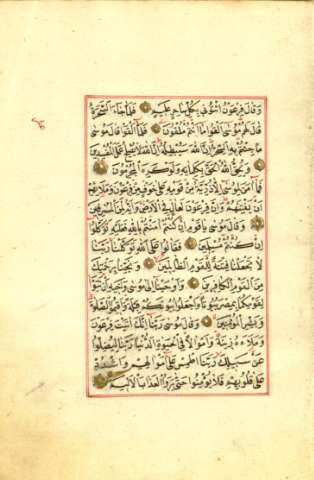 وَقَالَ فِرْعَوْنُ ائْتُونِي بِكُلِّ سَاحِرٍ عَلِيمٍ فَلَمَّا جَاءَ السَّحَرَةُ
قَالَ لَهُمْ مُوسَى أَلْقُوا مَا أَنْتُمْ مُلْقُونَ فَلَمَّا أَلْقَوْا قَالَ مُوسَى
مَا جِئْتُمْ بِهِ السِّحْرُ إِنَّ اللَّهَ سَيُبْطِلُهُ إِنَّ اللَّهَ لَا يُصْلِحُ عَمَلَ الْمُفْسِدِينَ
وَيُحِقُّ اللَّهُ الْحَقَّ بِكَلِمَاتِهِ وَلَوْ كَرِهَ الْمُجْرِمُونَ
فَمَا آمَنَ لِمُوسَى إِلَّا ذُرِّيَّةٌ مِنْ قَوْمِهِ عَلَى خَوْفٍ مِنْ فِرْعَوْنَ وَمَلَئِهِمْ
أَنْ يَفْتِنَهُمْ وَإِنَّ فِرْعَوْنَ لَعَالٍ فِي الْأَرْضِ وَإِنَّهُ لَمِنَ الْمُسْرِفِينَ
وَقَالَ مُوسَى يَا قَوْمِ إِنْ كُنْتُمْ آمَنْتُمْ بِاللَّهِ فَعَلَيْهِ تَوَكَّلُوا
إِنْ كُنْتُمْ مُسْلِمِينَ فَقَالُوا عَلَى اللَّهِ تَوَكَّلْنَا رَبَّنَا
لَا تَجْعَلْنَا فِتْنَةً لِلْقَوْمِ الظَّالِمِينَ وَنَجِّنَا بِرَحْمَتِكَ
مِنَ الْقَوْمِ الْكَافِرِينَ وَأَوْحَيْنَا إِلَى مُوسَى وَأَخِيهِ أَنْ تَبَوَّآ
لِقَوْمِكُمَا بِمِصْرَ بُيُوتًا وَاجْعَلُوا بُيُوتَكُمْ قِبْلَةً وَأَقِيمُوا الصَّلَاةَ
وَبَشِّرِ الْمُؤْمِنِينَ وَقَالَ مُوسَى رَبَّنَا إِنَّكَ آتَيْتَ فِرْعَوْنَ
وَمَلَأَهُ زِينَةً وَأَمْوَالًا فِي الْحَيَوةِ الدُّنْيَا رَبَّنَا لِيُضِلُّوا
عَنْ سَبِيلِكَ رَبَّنَا اطْمِسْ عَلَى أَمْوَالِهِمْ وَاشْدُدْ
عَلَى قُلُوبِهِمْ فَلَا يُؤْمِنُوا حَتَّى يَرَوُا الْعَذَابَ الْأَلِيمَ